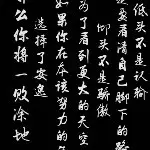 低头不是认输
是看清自己脚下的路
仰头不是骄傲
为了看到更大的天空
如果你在本该努力的年
选择了安逸
么你将一败涂地